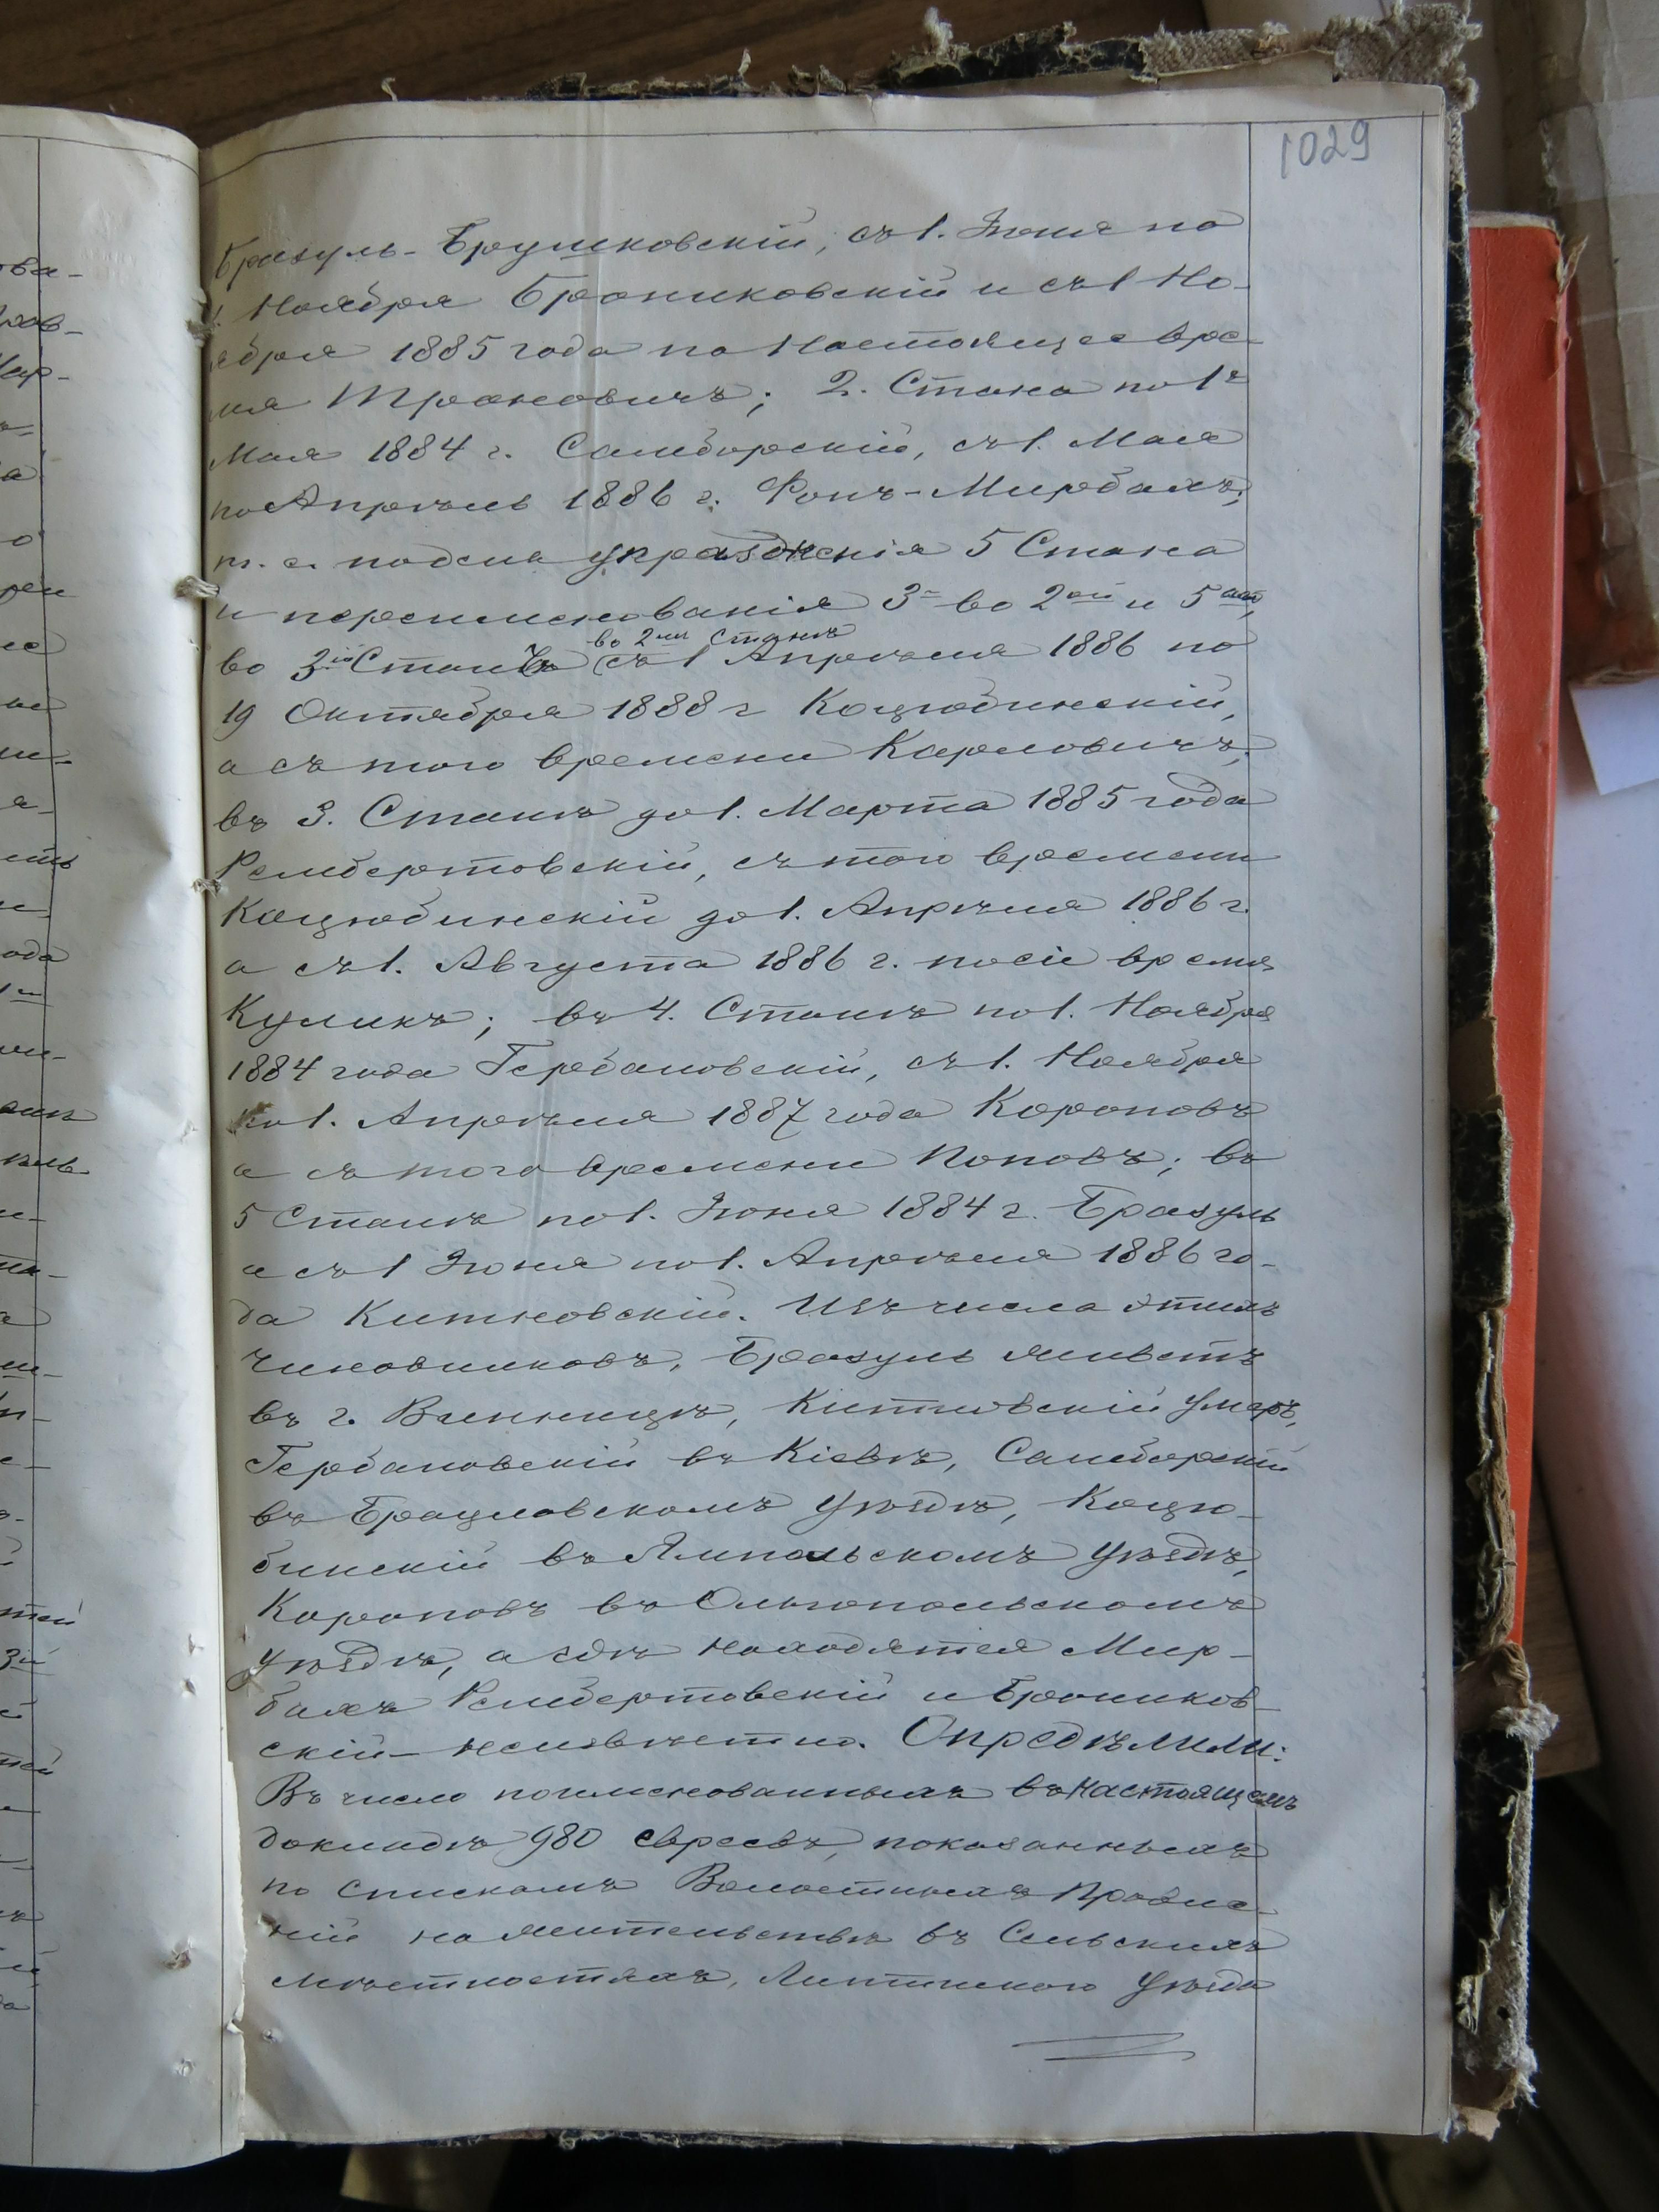 1029
Бразуль-Брушковскій, съ 1. Іюня по
1. Ноября Брониковскій и съ 1 Но-
ября 1885 года по настоящее вре-
мя Трановичъ; 2. Стана по 1е
Мая 1884 г. Самборскій, съ 1. Мая
по Апрѣль 1886 г. Фонъ-Мирбахъ;
т. е. послѣ упраздненія 5 Стана
и переименованія 3 во 2ой и 5
во 3й Станъ (съ 1 Апрѣля 1886 по
во 2мъ Станѣ
19 Октября 1888 г Коцюбинскій,
а съ того времени Карповичъ;
въ 3. Станѣ до 1. Марта 1885 года
Рембертовскій, съ того времени
Коцюбинскій до 1. Апрѣля 1886 г.
а съ 1. Августа 1886 г. по сіе время
Куликъ; въ 4. Станѣ по 1. Ноября
1884 года Гербановскій, съ 1. Ноября
по 1. Апрѣля 1887 года Короповъ
а съ того времени Поповъ; въ
5 Станѣ по 1. Іюня 1884 г. Бразуль
а съ 1 Іюня по 1. Апрѣля 1886 го-
да Китновскій. Изъ числа этихъ
чиновниковъ, Бразуль живетъ
въ г. Винницѣ, Китновскій умеръ,
Гербановскій въ Кіевѣ, Самборскій
въ Брацлавскомъ уѣздѣ, Коцю-
бинскій въ Ямпольскомъ уѣздѣ,
Короповъ въ Ольгопольскомъ
уѣздѣ, а гдѣ находятся Мир-
бахъ Рембертовскій и Броников-
скій – неизвѣстно. Опредѣлили:
Въ число поименованныхъ въ настоящемъ
докладѣ 980 евреевъ, показанныхъ
по спискамъ Волостныхъ Правле-
ній на жительствѣ въ Сельскихъ
мѣстностяхъ, Литинского уѣзда